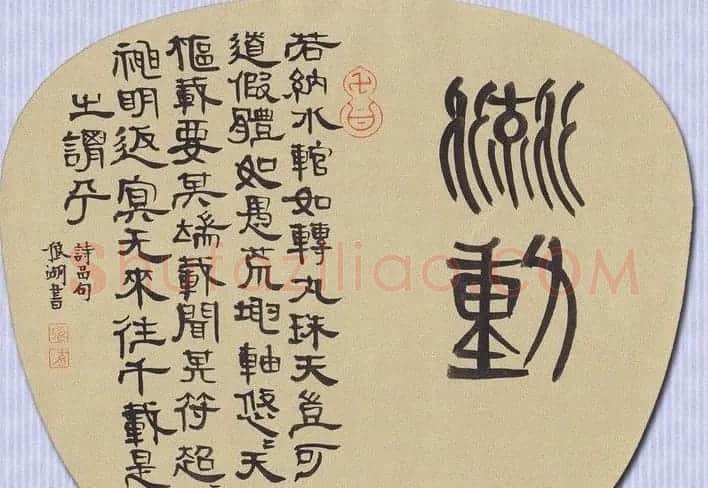 流動
若納水輨如轉丸珠夫豈可
道假體如愚荒坤軸悠〻天
樞載要其端載聞其符超
神明返冥无來往千載是
之謂乎
詩品句
湖書
Shufaziliao.COM